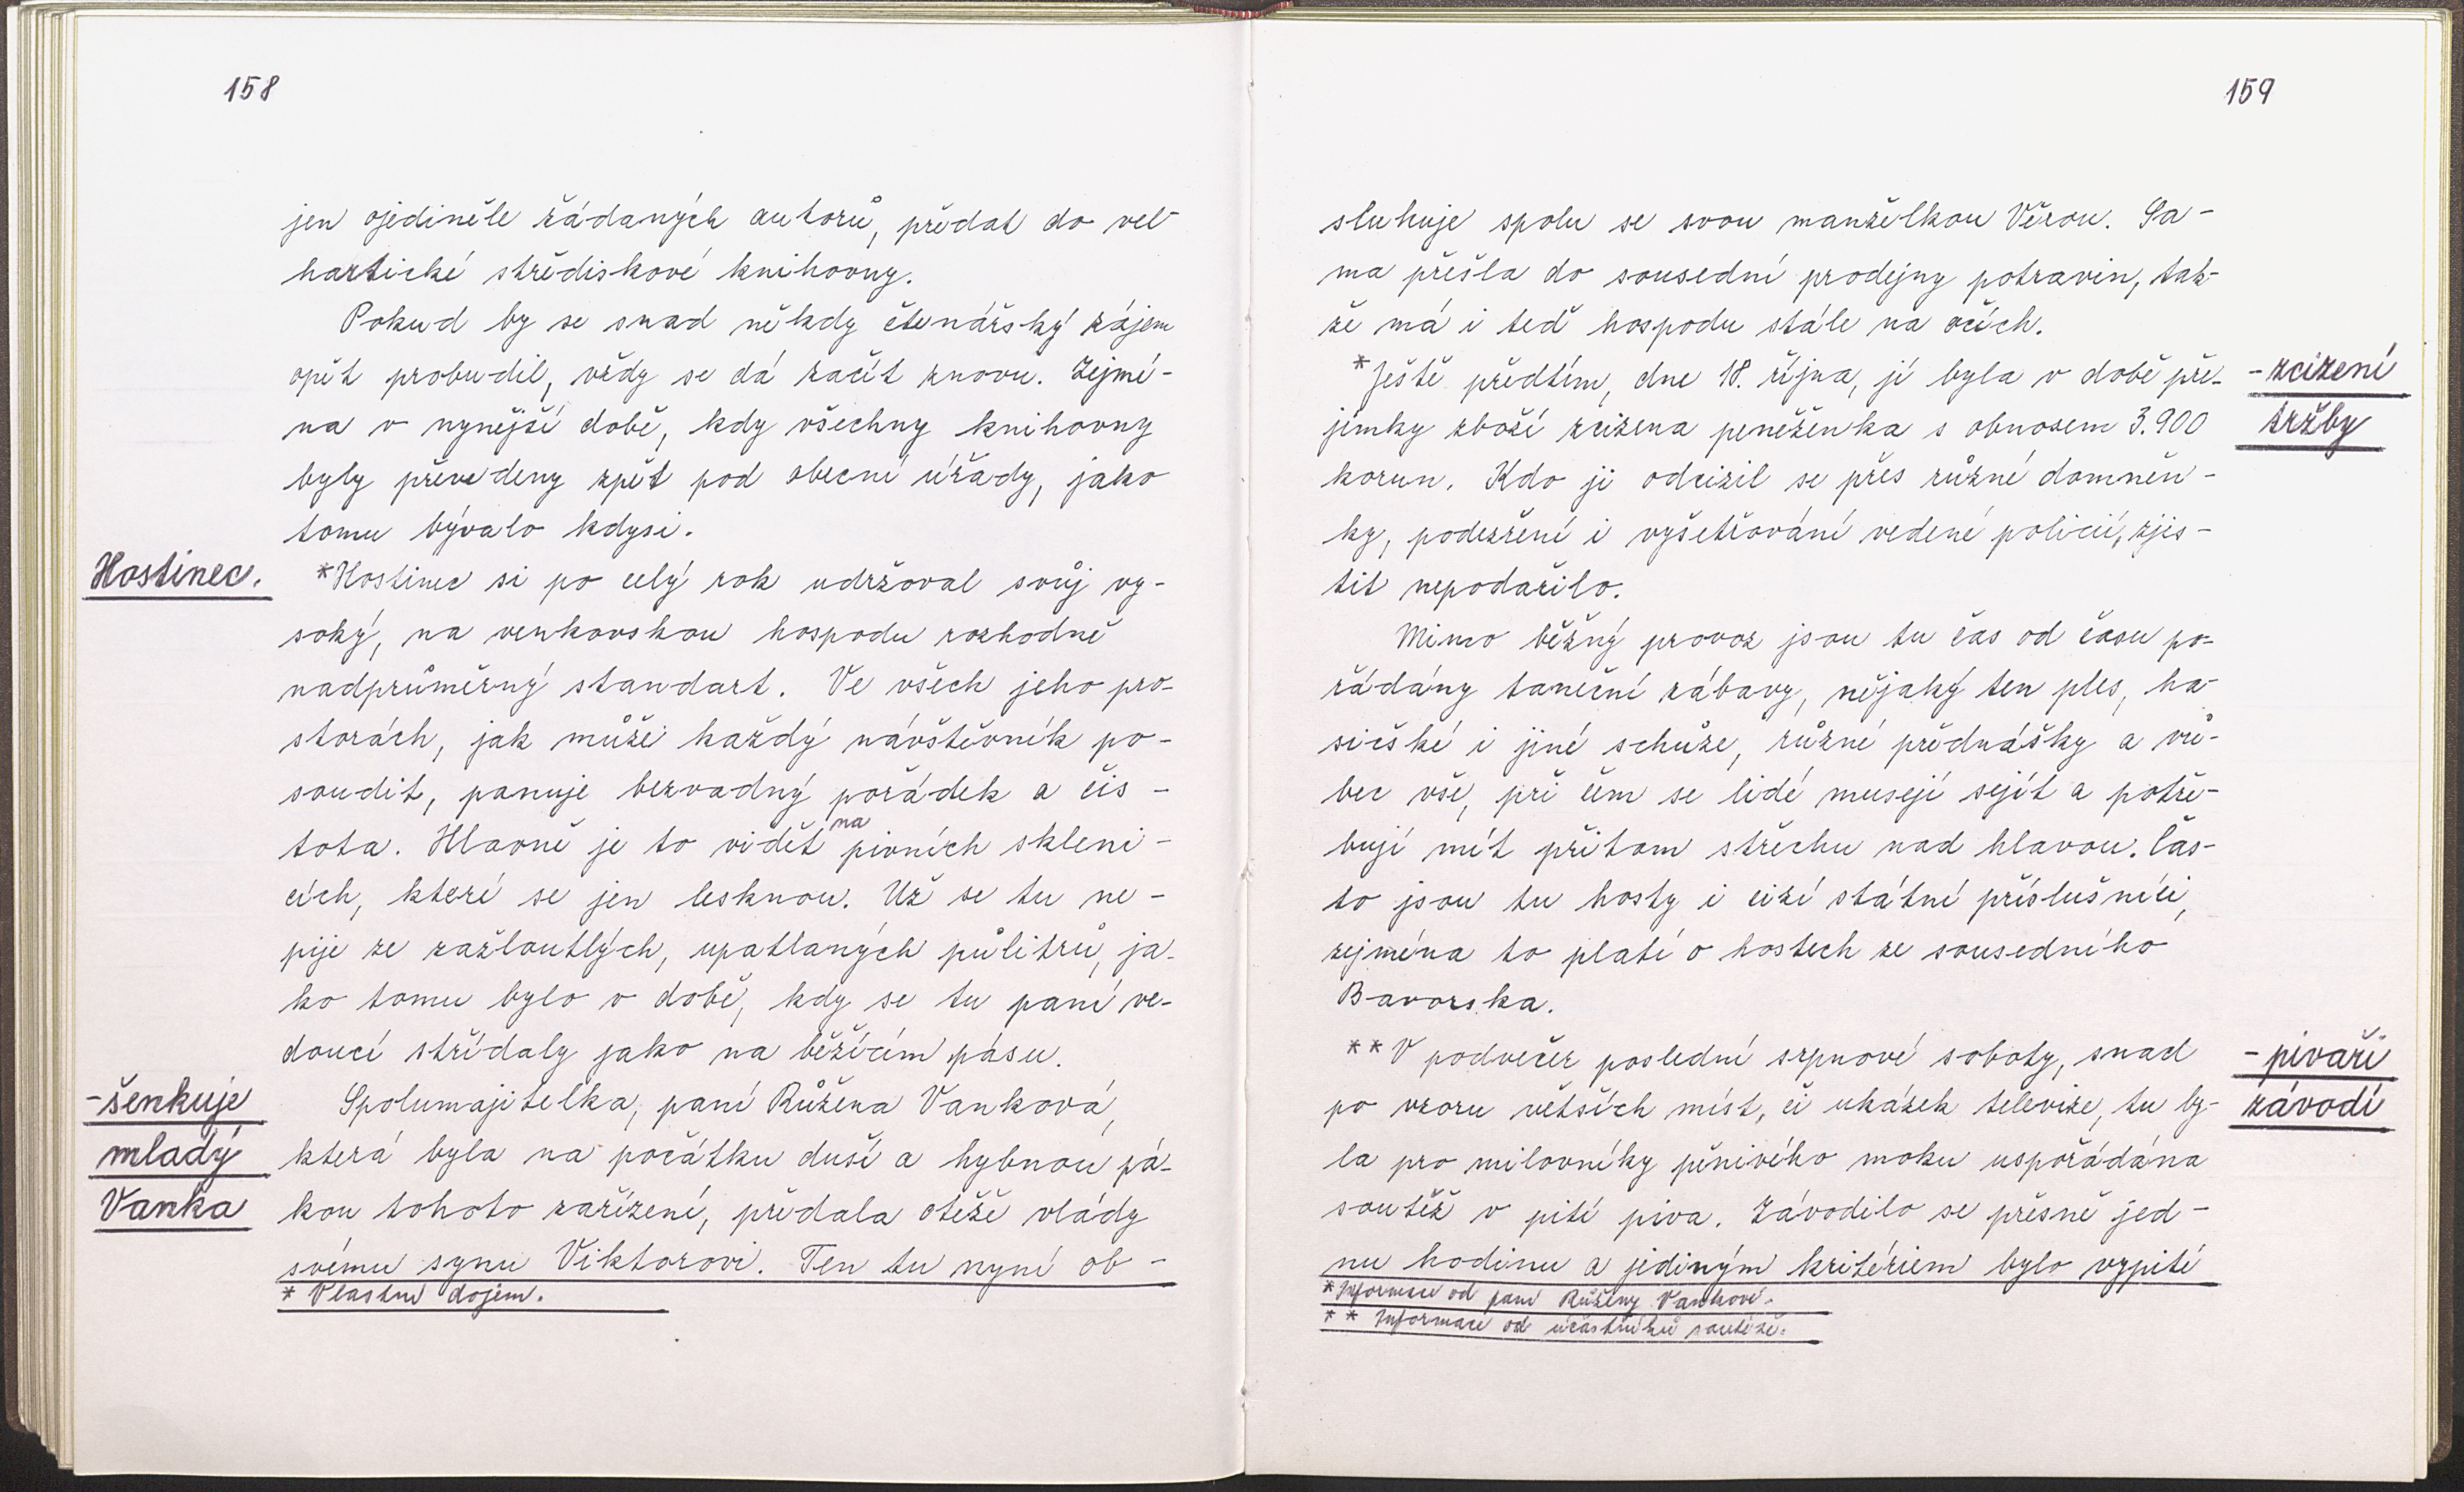 158
jen ojediněle žádaných autorů, předat do vel-
hartické střediskové knihovny.
Pokud by se snad někdy čtenářský zájem
opět probudil, vždy se dá začít znovu. Zejmé-
na v nynější době, kdy všechny knihovny
byly převedeny zpět pod obecní úřady, jako
tomu bývalo kdysi.
Hostinec. *Hostinec si po celý rok udržoval svůj vy-
soký, na venkovskou hospodu rozhodně
nadprůměrný standart. Ve všech jeho pro-
storách, jak může každý návštěvník po-
soudit, panuje bezvadný pořádek a čis-
tota. Hlavně je to vidět na pivních skleni-
cích, které se jen lesknou. Už se tu ne-
pije ze zažloutlých, upatlaných půlitrů, ja-
ko tomu bylo v době, kdy se tu paní ve-
doucí střídaly jako na běžícím pásu.
-šenkuje Spolumajitelka, paní Růžena Vanková,
mladý která byla na počátku duší a hybnou pá-
Vanka kou tohoto zařízení, předala otěže vlády
svému synu Viktorovi. Ten tu nyní ob-
* Vlastní dojem.
159
sluhuje spolu se svou manželkou Věrou. Sa-
ma přešla do sousední prodejny potravin, tak-
že má i teď hospodu stále na očích.
*Ještě předtím, dne 18. října, jí byla v době pře- -zcizení
jímky zboží zcizena peněženka s obnosem 3.900 tržby
korun. Kdo ji odcizil se přes různé domněn-
ky, podezření i vyšetřování vedené policií, zjis-
tit nepodařilo.
Mimo běžný provoz jsou tu čas od času po-
řádány taneční zábavy, nějaký ten ples, ha-
sičské i jiné schůze, různé přednášky a vů-
bec vše, při čem se lidé musejí sejít a potře-
bují mít přitom střechu nad hlavou. Čas-
to jsou tu hosty i cizí státní příslušníci,
zejména to platí o hostech ze sousedního
Bavorska.
** V podvečer poslední srpnové soboty, snad -pivaři
po vzoru větších míst, či ukázek televize, tu by- závodí
la pro milovníky pěnivého moku uspořádána
soutěž v pití piva. Závodilo se přesně jed-
nu hodinu a jediným kritériem bylo vypití
* Informace od paní Růženy Vankové.
** Informace od účastníků soutěže.